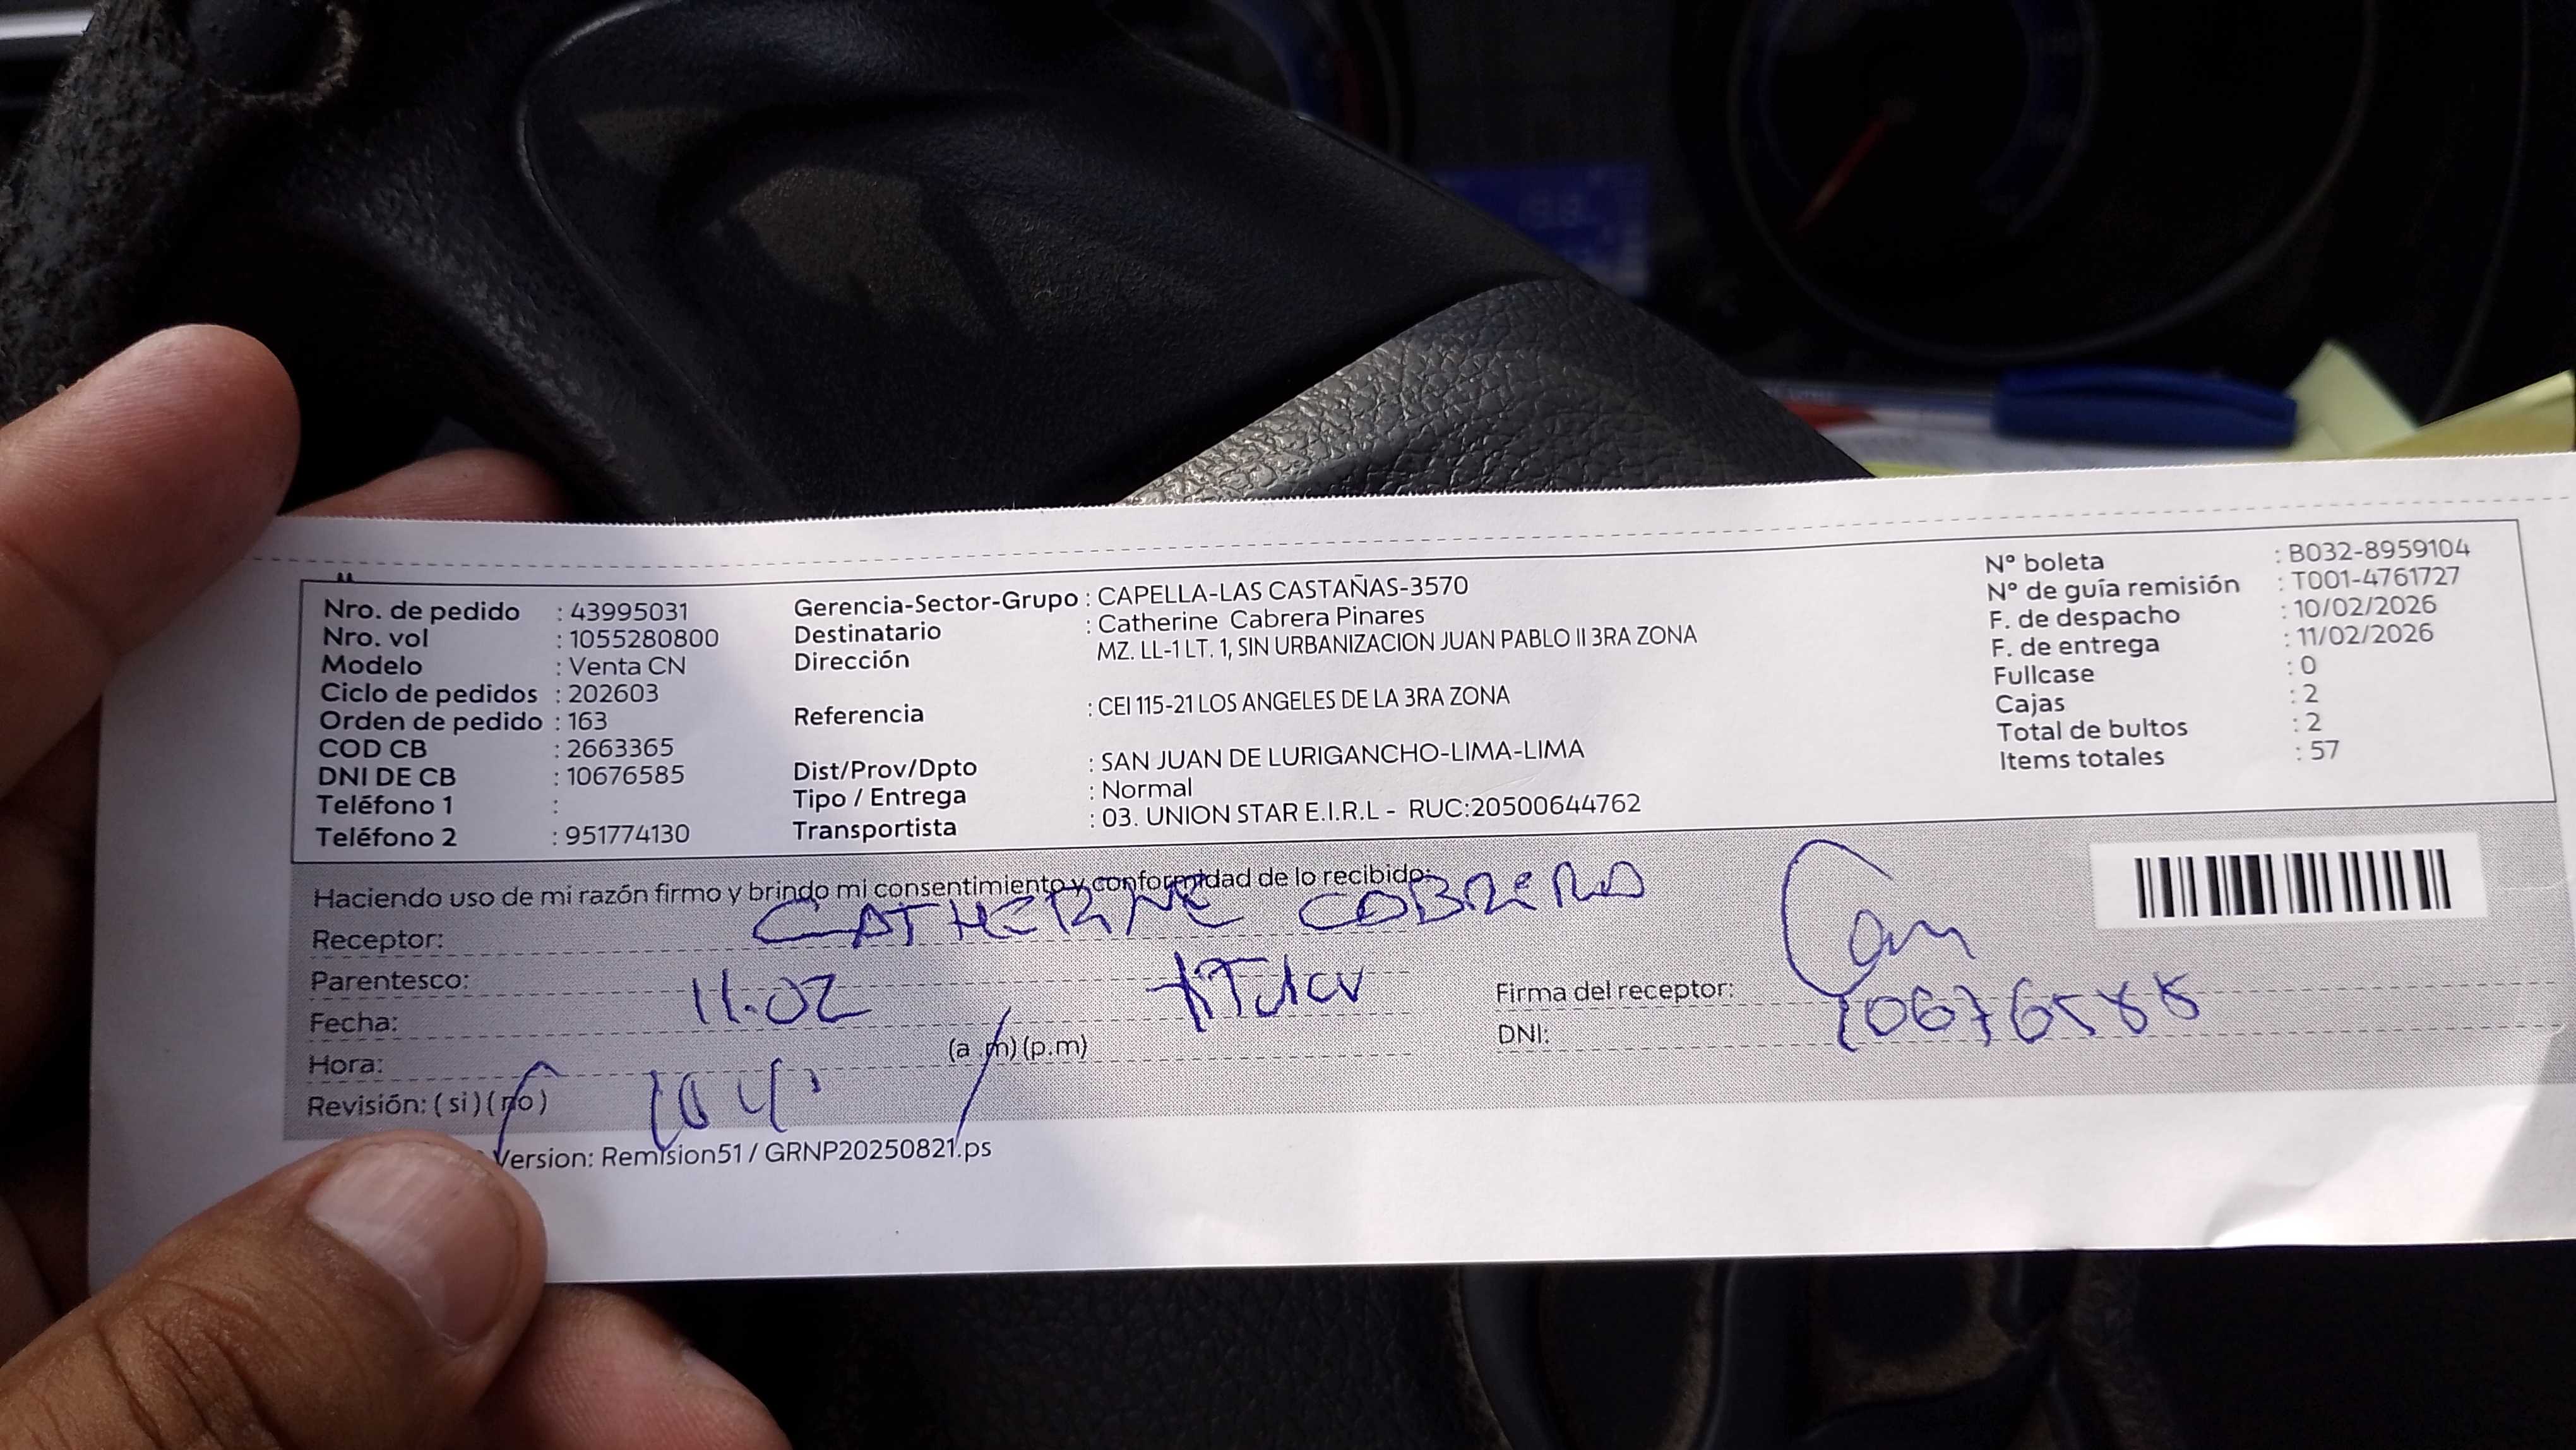 Nro. de pedido : 43995031
Nro. vol : 1055280800
Modelo : Venta CN
Ciclo de pedidos : 202603
Orden de pedido : 163
COD CB : 2663365
DNI DE CB : 10676585
Teléfono 1 :
Teléfono 2 : 951774130
Gerencia-Sector-Grupo : CAPELLA-LAS CASTAÑAS-3570
Destinatario : Catherine Cabrera Pinares
Dirección MZ. LL-1 LT. 1, SIN URBANIZACION JUAN PABLO II 3RA ZONA
Referencia : CEI 115-21 LOS ANGELES DE LA 3RA ZONA
Dist/Prov/Dpto : SAN JUAN DE LURIGANCHO-LIMA-LIMA
Tipo / Entrega : Normal
Transportista : 03. UNION STAR E.I.R.L - RUC:20500644762
Nº boleta : B032-8959104
Nº de guía remisión : T001-4761727
F. de despacho : 10/02/2026
F. de entrega : 11/02/2026
Fullcase : 0
Cajas : 2
Total de bultos : 2
Items totales : 57
Haciendo uso de mi razón firmo y brindo mi consentimiento y conformidad de lo recibido:
Receptor: CATHERINE CABRERA
Parentesco: TITULAR
Fecha: 11.02
Hora: (a.m)(p.m)
Revisión: (si)(no)
Firma del receptor:
DNI: 10676585
Version: Remision51 / GRNP20250821.ps